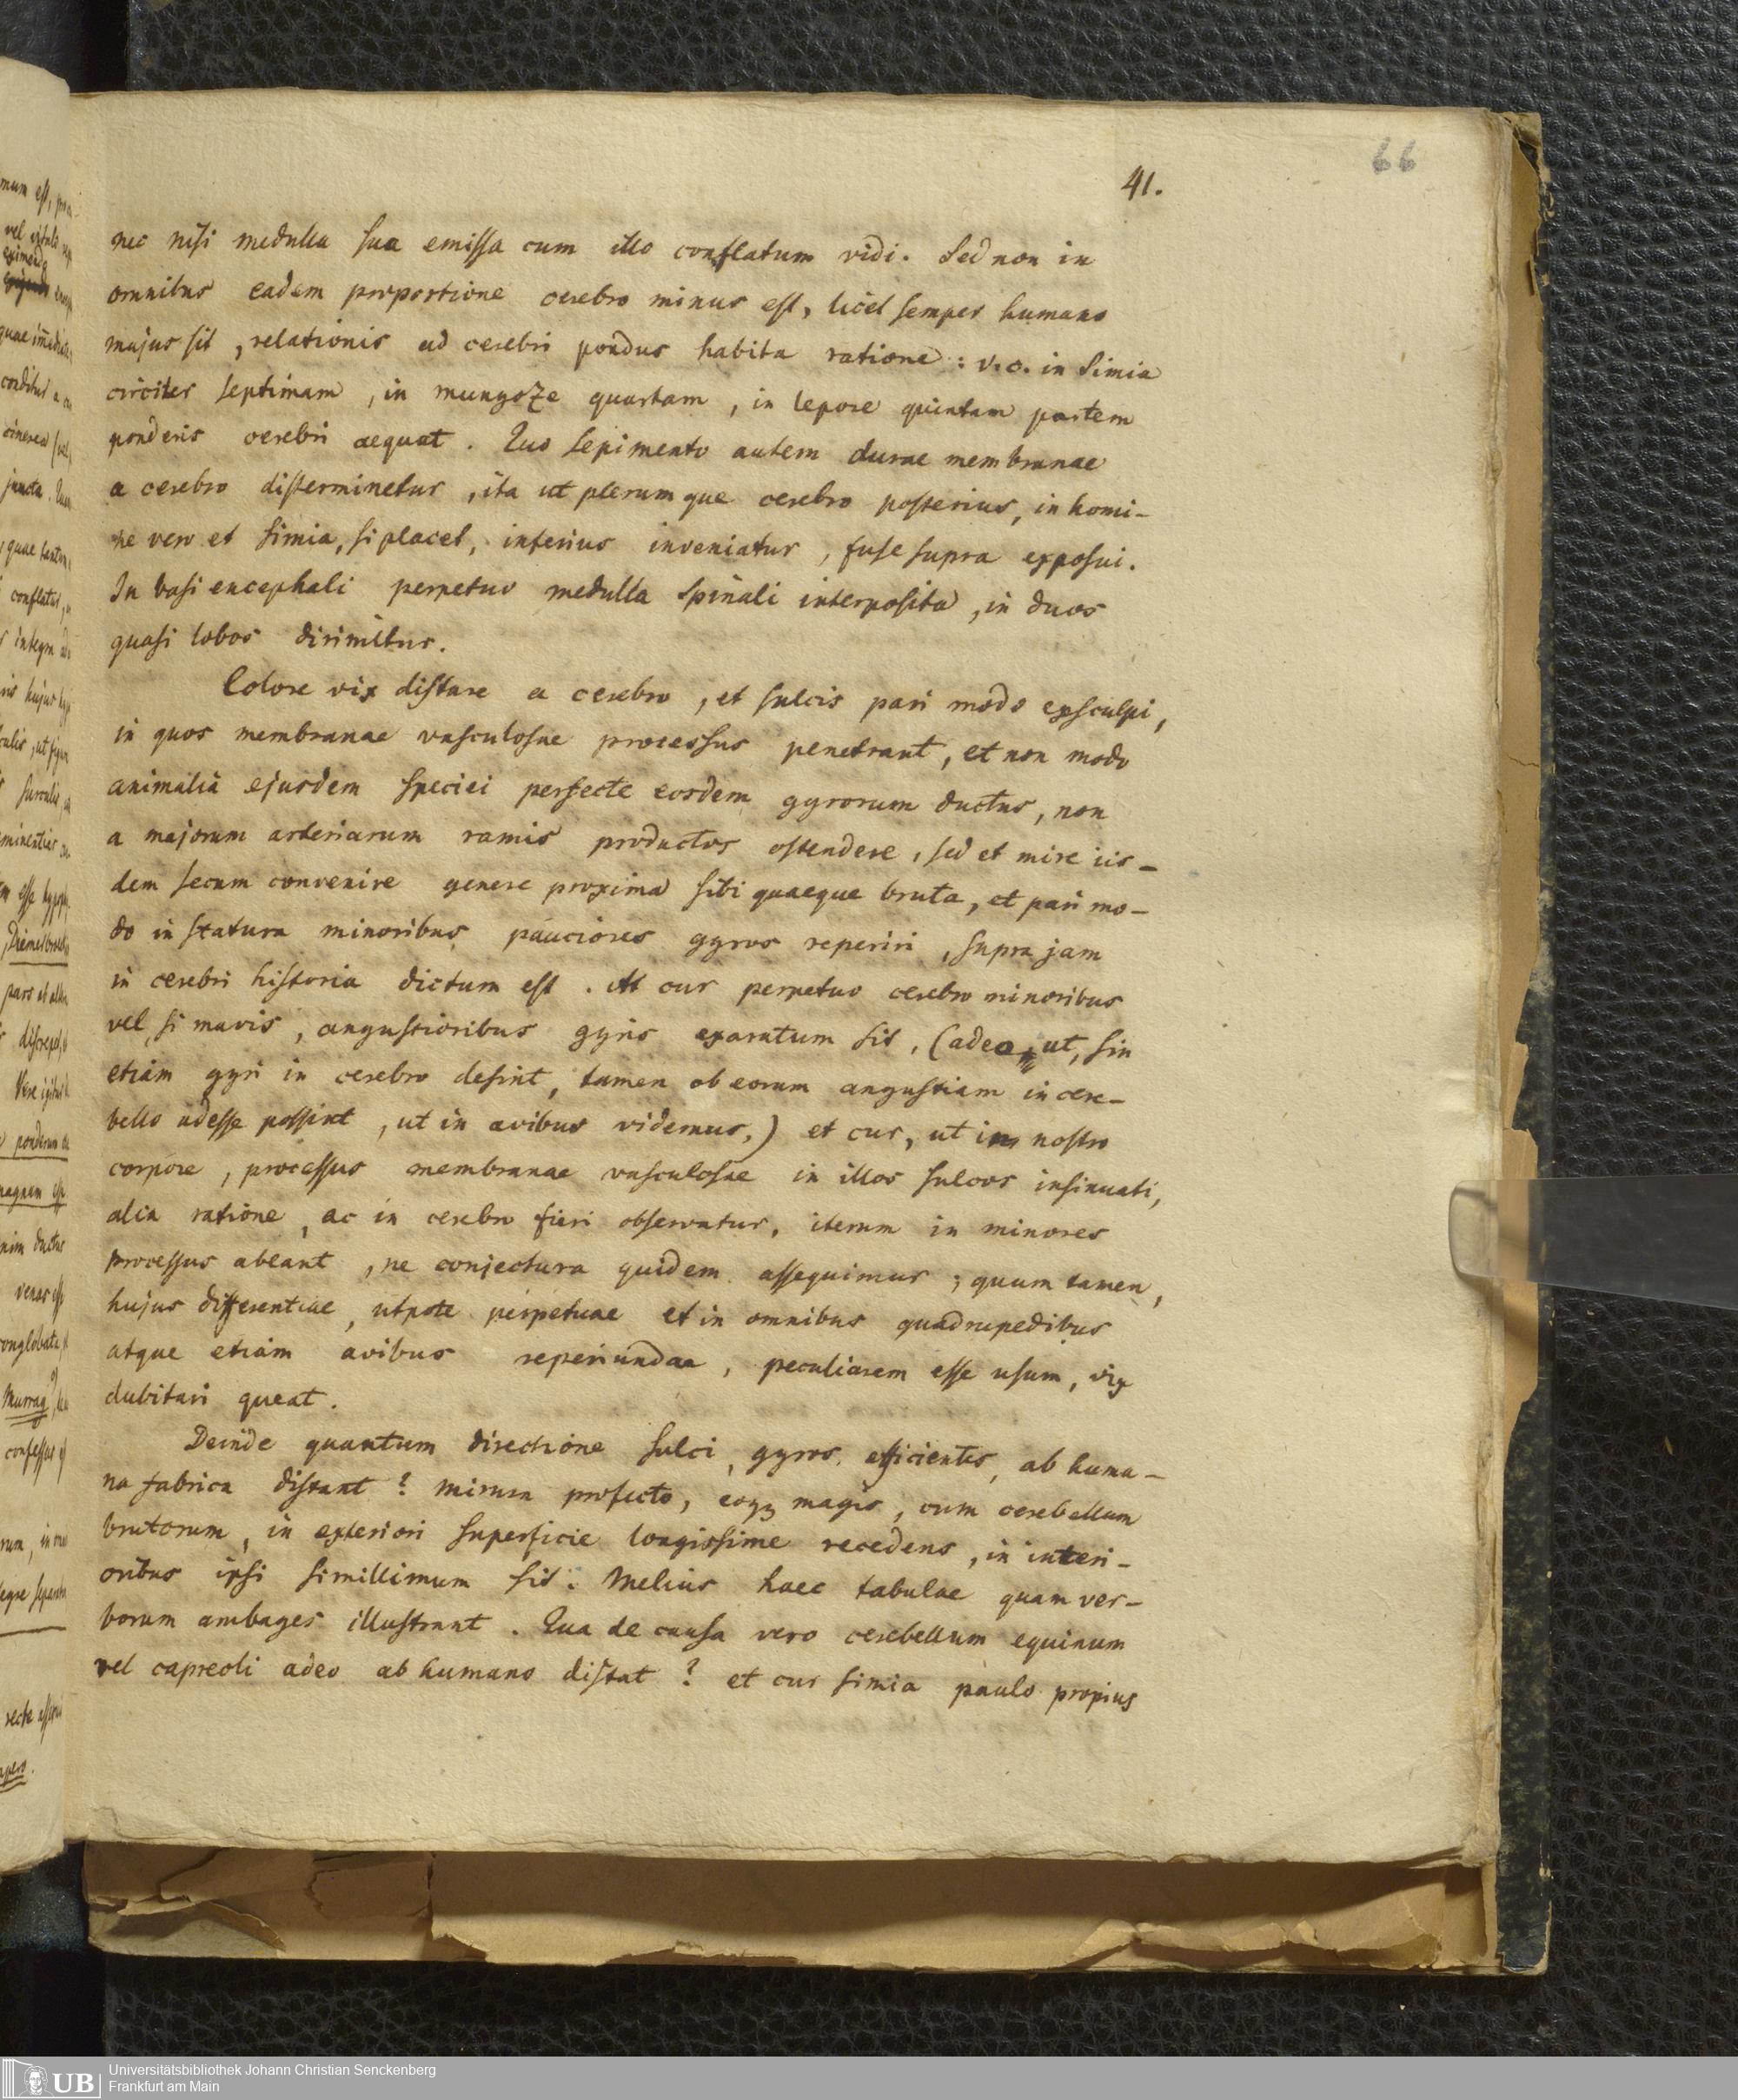 66
41.
nec nisi medulla sua emissa cum illo conflatum vidi. Sed non in
omnibus eadem proportione cerebro minus est, licet semper humano
majus sit, relationis ad cerebri pondus habita ratione: v. c. in Simia
circiter septimam, in mungoze quartam, in lepore quintam partem
ponderis cerebri aequat. Quo sepimento autem durae membranae
a cerebro disterminetur, ita ut plerumque cerebro posterius, in homi-
ne vero et simia, si placet, inferius inveniatur, fuse supra exposui.
In basi encephali perpetuo medulla spinali interposita, in duos
quasi lobos dirimitur.
Colore vix distare a cerebro, et sulcis pari modo exsculpi,
in quos membranae vasculosae processus penetrant, et non modo
animalia ejusdem speciei perfecte eosdem gyrorum ductus, non
a majorum arteriarum ramis productos ostendere, sed et mire iis-
dem secum convenire genere proxima sibi quaeque bruta, et pari mo-
do in statura minoribus pauciores gyros reperiri, supra jam
in cerebri historia dictum est. At cur perpetuo cerebro minoribus
vel, si mavis, angustioribus gyris exaratum sit, (adeo, ut, sin
etiam gyri in cerebro desint, tamen ob eorum angustiam in cere-
bello adesse possint, ut in avibus videmus,) et cur, ut in nostro
corpore, processus membranae vasculosae in illos sulcos insinuati,
alia ratione, ac in cerebro fieri observatur, iterum in minores
processus abeant, ne conjectura quidem assequimur; quum tamen,
hujus differentiae, utpote perpetuae et in omnibus quadrupedibus
atque etiam avibus reperiundae, peculiarem esse usum, vix
dubitari queat.
Deinde quantum directione sulci, gyros efficientes, ab huma-
na fabrica distant? mirum profecto, eoq3 magis, cum cerebellum
brutorum, in exteriori superficie longissime recedens, in interi-
oribus ipsi simillimum sit. Melius haec tabulae quam ver-
borum ambages illustrant. Qua de causa vero cerebellum equinum
vel capreoli adeo ab humano distat? et cur simia paulo propius
UB
Universitätsbibliothek Johann Christian Senckenberg
Frankfurt am Main